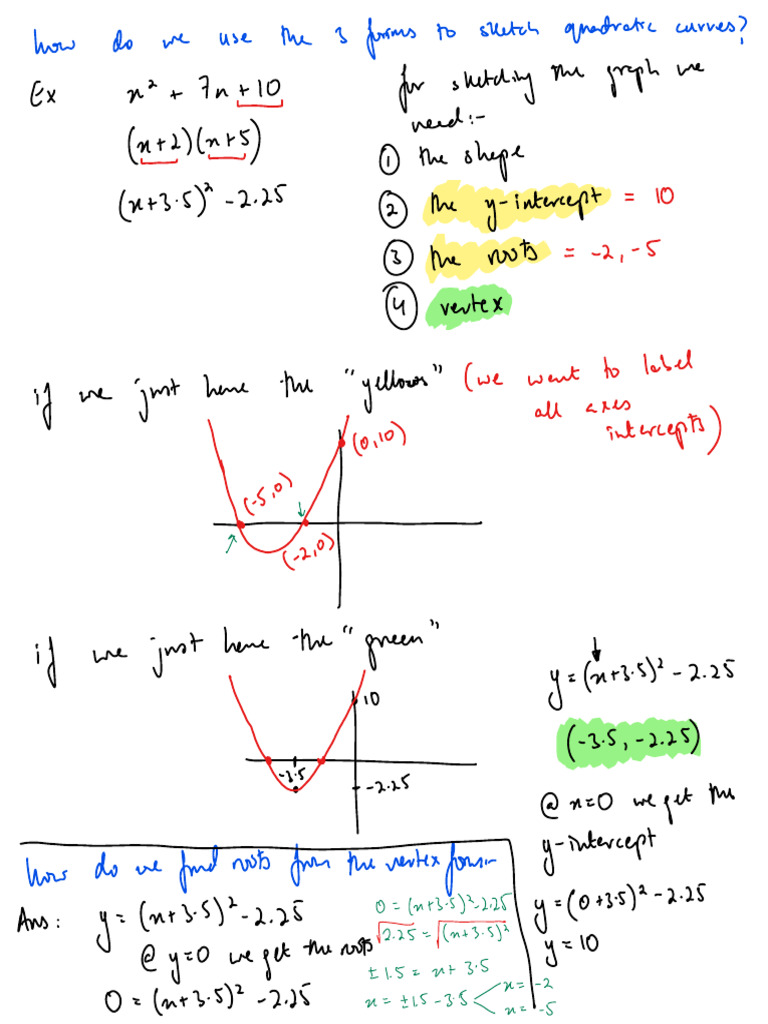 how do we use the 3 forms to sketch quadratic curves?
Ex x² + 7x + 10
(x+2)(x+5)
(x+3.5)² - 2.25
for sketching the graph we
need:-
① the shape
② the y-intercept = 10
③ the roots = -2, -5
④ vertex
if we just have the "yellows" (we want to label
all axes
intercepts)
(0,10)
(-5,0)
(-2,0)
if we just have the "green"
10
-3.5
-2.25
y = (x+3.5)² - 2.25
(-3.5, -2.25)
@ x=0 we get the
y-intercept
y = (0+3.5)² - 2.25
y = 10
how do we find roots from the vertex form:-
Ans: y = (x+3.5)² - 2.25
@ y=0 we get the roots
0 = (x+3.5)² - 2.25
0 = (x+3.5)² - 2.25
√2.25 = √(x+3.5)²
±1.5 = x + 3.5
x = ±1.5 - 3.5
x = -2
x = -5